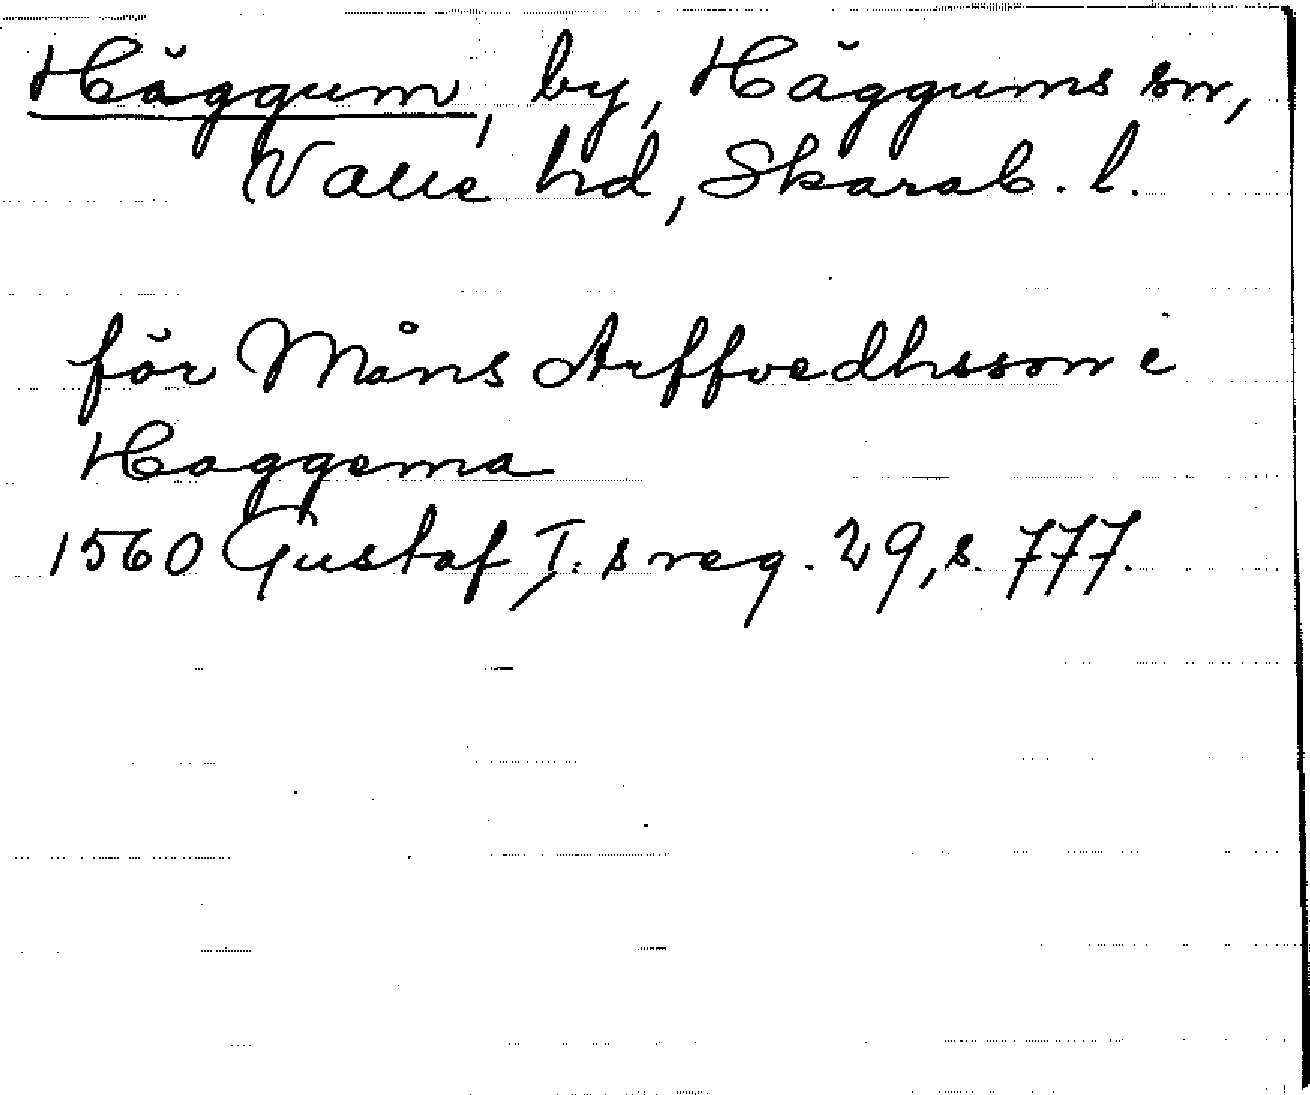 Häggum, by, Häggums sn,
Valle hd, Skarab. l.
för Måns Arffvedhsson i
Haggema
1560 Gustaf I:s reg. 29, s. 777.